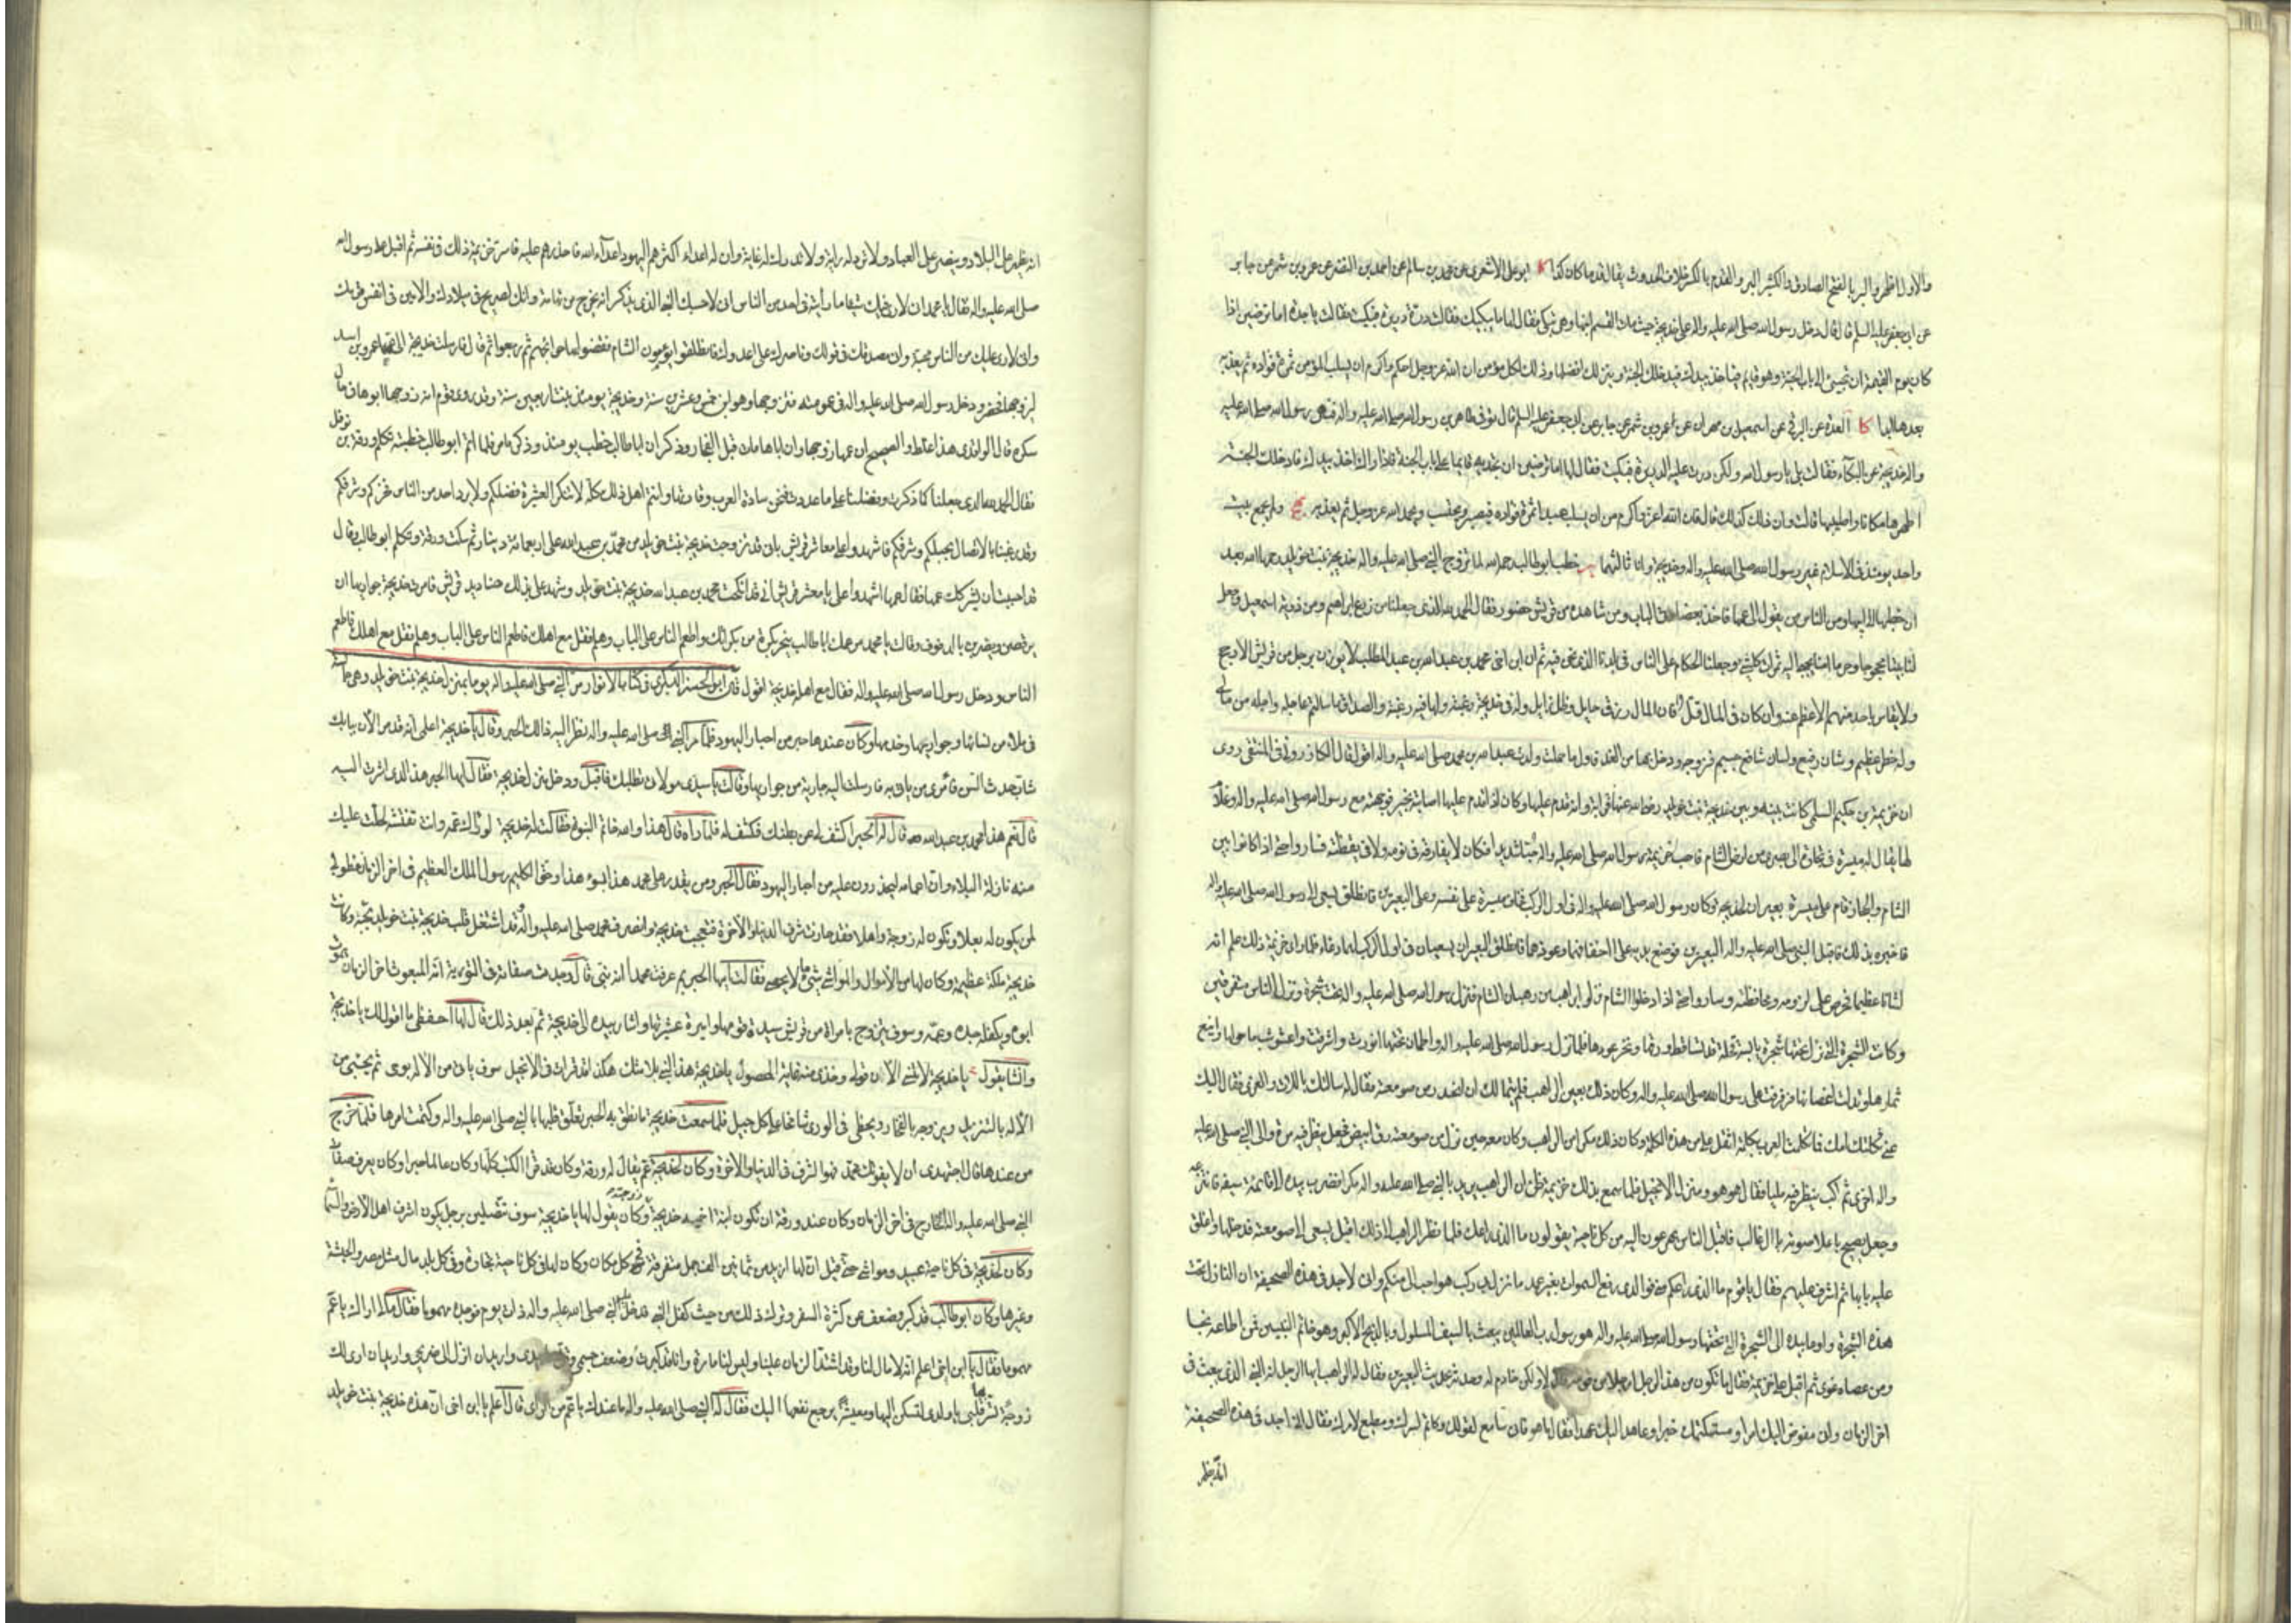 والاول اظهر والبر بالفتح الصادق والكثير البر والقدم بالكسر خلاف الحدوث يقال قدما كان كذا كا ابو علي الاشعري عن محمد بن سالم عن احمد بن النضر عن عمرو بن شمر عن جابر
عن ابي جعفر عليه السلم قال قال دخل رسول الله صلى الله عليه واله على خديجة حيث مات القسم ابنها وهي تبكي فقال لها ما يبكيك فقالت درت دريرة فبكيت فقال يا خديجة اما ترضين اذا
كان يوم القيمة ان تجيئي الى باب الجنة وهو قائم فياخذ بيدك فيدخلك الجنة وينزلك افضلها وذلك لكل مؤمن ان الله عز وجل احكم واكرم ان يسلب المؤمن ثمرة فؤاده ثم يعذبه
بعدها ابدا كا العدة عن البرقي عن اسمعيل بن مهران عن عمرو بن شمر عن جابر عن ابي جعفر عليه السلم قال توفي طاهر بن رسول الله صلى الله عليه واله فنهى رسول الله صلى الله عليه
واله خديجة عن البكاء فقالت بلى يا رسول الله ولكن درت عليه الدريرة فبكيت فقال لها اما ترضين ان تجديه قائما على باب الجنة فاذا راك اخذ بيدك فادخلك الجنة
اطهرها مكانا واطيبها قالت وان ذلك كذلك قال فان الله اعز واكرم من ان يسلب عبدا ثمرة فؤاده فيصبر ويحتسب ويحمد الله عز وجل ثم يعذبه نهج ولم يجمع بيت
واحد يومئذ في الاسلام غير رسول الله صلى الله عليه واله وخديجة وانا ثالثهما خطب ابو طالب رحمه الله لما تزوج النبي صلى الله عليه واله خديجة بنت خويلد رحمها الله بعد
ان خطبها الى ابيها ومن الناس من يقول الى عمها فاخذ بعضادتي الباب ومن شاهده من قريش حضور فقال الحمد لله الذي جعلنا من زرع ابراهيم ومن ذرية اسمعيل وجعل
لنا بيتا محجوجا وحرما امنا يجبى اليه ثمرات كل شيء وجعلنا الحكام على الناس في بلدنا الذي نحن فيه ثم ان ابن اخي محمد بن عبد الله بن عبد المطلب لا يوزن برجل من قريش الا رجح
ولا يقاس باحد منهم الا عظم عنه وان كان في المال قل فان المال رزق حايل وظل زايل وله في خديجة رغبة ولها فيه رغبة والصداق ما سالتم عاجله واجله من مالي
وله خطر عظيم وشان رفيع ولسان شافع جسيم فزوجه ودخل بها من الغد فاول ما حملت ولدت عبد الله بن محمد صلى الله عليه واله اقول قال الكازروني في المنتقى روي
ان خزيمة بن حكيم السلمي كانت بينه وبين خديجة بنت خويلد رضي الله عنها قرابة وانه قدم عليها وكان اذا قدم عليها اصابته بخير فوجهته مع رسول الله صلى الله عليه واله وغلام
لها يقال له ميسرة في تجارة الى بصرى من ارض الشام فاحب خزيمة رسول الله صلى الله عليه واله حبا شديدا فكان لا يفارقه في نومه ولا في يقظته فساروا حتى اذا كانوا بين
الشام والحجاز قام على ميسرة بعيران لخديجة وكان رسول الله صلى الله عليه واله في اول الركب فخاف ميسرة على نفسه وعلى البعيرين فانطلق يسعى الى رسول الله صلى الله عليه واله
فاخبره بذلك فاقبل النبي صلى الله عليه واله الى البعيرين فوضع يده على اخفافهما وعوذهما فانطلق البعيران يسعيان في اول الركب لهما رغاء فلما راى خزيمة ذلك علم انه
لشانا عظيما فحرص على لزومه ومحافظته وساروا حتى اذا دخلوا الشام نزلوا براهب من رهبان الشام فنزل رسول الله صلى الله عليه واله تحت شجرة ونزل الناس متفرقين
وكانت الشجرة التي نزل تحتها شجرة يابسة قحلة قد تساقط ورقها ونخر عودها فلما نزل رسول الله صلى الله عليه واله واطمان تحتها انورت واشرقت واعشوشب ما حولها واينع
ثمارها وتدلت اغصانها فرفرفت على رسول الله صلى الله عليه واله وكان ذلك بعين الراهب فلم يتمالك ان انحدر من صومعته فقال له سالتك باللات والعزى فقال اليك
عني ثكلتك امك فما تكلمت العرب بكلمة اثقل علي من هذه الكلمة وكان ذلك مكرا من الراهب وكان معه حين نزل من صومعته رق ابيض فجعل ينظر فيه مرة والى النبي صلى الله عليه
واله اخرى ثم اكب ينظر فيه مليا فقال هو هو ومنزل الانجيل فلما سمع بذلك خزيمة ظن ان الراهب يريد بالنبي صلى الله عليه واله مكرا فضرب بيده الى قائمة سيفه فانتزعه
وجعل يصيح باعلا صوته يا ال غالب فاقبل الناس يهرعون اليه من كل ناحية يقولون ما الذي راعك فلما نظر الراهب الى ذلك اقبل يسعى الى صومعته فدخلها واغلق
عليه بابها ثم اشرف عليهم فقال يا قوم ما الذي راعكم مني فوالذي رفع السموات بغير عمد ما نزل بي ركب هو احب الي منكم واني لاجد في هذه الصحيفة ان النازل تحت
هذه الشجرة واومأ بيده الى الشجرة التي تحتها رسول الله صلى الله عليه واله هو رسول رب العالمين يبعث بالسيف المسلول وبالذبح الاكبر وهو خاتم النبيين فمن اطاعه نجا
ومن عصاه غوى ثم اقبل على خزيمة فقال ما تكون من هذا الرجل ارجلا من قومه قال لا ولكن خادم له وحدثه بحديث البعيرين فقال له الراهب ايها الرجل انه النبي الذي يبعث في
اخر الزمان واني مفوض اليك امرا ومستكتمك خبرا وعاهد اليك عهدا فقال ما هو فاني سامع لقولك وكاتم لسرك ومطيع لامرك فقال اني اجد في هذه الصحيفة
انه يظهر
انه يظهر على البلاد وينصر على العباد ولا ترد له راية ولا تدرك له غاية وان له اعداء اكثرهم اليهود اعداء الله فاحذرهم عليه فاسر خزيمة ذلك في نفسه ثم اقبل على رسول الله
صلى الله عليه واله فقال يا محمد اني لارى فيك شيئا ما رأيته في احد من الناس اني لاحسبك النبي الذي يذكر انه يخرج من تهامة وانك لصريح في ميلادك والامين في انفس قومك
واني لارى عليك من الناس محبة واني مصدقك في قولك وناصرك على عدوك فانطلقوا يؤمون الشام فقضوا بها حوائجهم ثم رجعوا ثم قال فارسلت خديجة الى عمها عمرو بن اسد
ليزوجها فحضر ودخل رسول الله صلى الله عليه واله في عمومته فتزوجها وهو ابن خمس وعشرين سنة وخديجة يومئذ بنت اربعين سنة وقد روى قوم انه زوجها ابوها في حال
سكره قال الواقدي هذا غلط والصحيح ان عمها زوجها وان اباها مات قبل الفجار وذكر ان ابا طالب خطب يومئذ وذكر ما مر فلما اتم ابو طالب خطبته تكلم ورقة بن نوفل
فقال الحمد لله الذي جعلنا كما ذكرت وفضلنا على ما عددت فنحن سادة العرب وقادتها وانتم اهل ذلك كله لا تنكر العشيرة فضلكم ولا يرد احد من الناس فخركم وشرفكم
وقد رغبنا بالاتصال بحبلكم وشرفكم فاشهدوا علي معاشر قريش باني قد زوجت خديجة بنت خويلد من محمد بن عبد الله على اربعمائة دينار ثم سكت ورقة وتكلم ابو طالب وقال
قد احببت ان يشركك عمها فقال عمها اشهدوا علي يا معشر قريش اني قد انكحت محمد بن عبد الله خديجة بنت خويلد وشهد على ذلك صناديد قريش فامرت خديجة جواريها ان
يرقصن ويضربن بالدفوف وقالت يا محمد مر عمك ابا طالب ينحر بكرة من بكراتك واطعم الناس على الباب وهلم فقل مع اهلك فاطعم الناس
الناس ودخل رسول الله صلى الله عليه واله فقال مع اهله خديجة اقول قال ابو الحسن البكري في كتاب الانوار مر النبي صلى الله عليه واله يوما بمنزل خديجة بنت خويلد وهي جالسة
في ملاء من نسائها وجواريها وخدمها وكان عندها حبر من احبار اليهود فلما مر النبي صلى الله عليه واله نظر اليه ذلك الحبر وقال يا خديجة اعلمي انه قد مر الان ببابك
شاب حدث السن فامري من يأتي به فارسلت اليه جارية من جواريها وقالت يا سيدي مولاتي تطلبك فاقبل ودخل منزل خديجة فقالت ايها الحبر هذا الذي اشرت اليه
قال نعم هذا محمد بن عبد الله قال له الحبر اكشف لي عن بطنك فكشف له فلما راه قال هذا والله خاتم النبوة فقالت له خديجة لو راك عمه وانت تفتشه لحلت عليك
منه نازلة البلاء وان اعمامه ليحذرون عليه من احبار اليهود فقال الحبر ومن يقدر على محمد هذا بسوء هذا وحق الكليم رسول الملك العظيم في اخر الزمان فطوبى
لمن يكون له بعلا وتكون له زوجة واهلا فقد حازت شرف الدنيا والاخرة فتعجبت خديجة وانصرف محمد صلى الله عليه واله وقد اشتغل قلب خديجة بنت خويلد بحبه وكانت
خديجة ملكة عظيمة وكان لها من الاموال والمواشي شيء لا يحصى فقالت ايها الحبر بم عرفت محمدا انه نبي قال وجدت صفاته في التورية انه المبعوث اخر الزمان يموت
ابوه ويكفله جده وعمه وسوف يتزوج بامراة من قريش سيدة قومها واميرة عشيرتها واشار بيده الى خديجة ثم بعد ذلك قال لها احفظي ما اقول لك يا خديجة
وانشأ يقول يا خديجة لا تنسي الان قولي وخذي منه غاية المحصول يا خديجة هذا النبي بلا شك هكذا قد قرات في الانجيل سوف يأتي من الاله بوحي ثم يحبى من
الاله بالتنزيل ويزوجه بالفخار ويحظى في الورى شامخا على كل جيل فلما سمعت خديجة ما نطق به الحبر تعلق قلبها بالنبي صلى الله عليه واله وكتمت امرها فلما خرج
من عندها قال اجتهدي ان لا يفوتك محمد فهو الشرف في الدنيا والاخرة وكان لخديجة عم يقال له ورقة وكان قد قرأ الكتب كلها وكان عالما حبرا وكان يعرف صفات
النبي صلى الله عليه واله الخارج في اخر الزمان وكان عند ورقة ان تكون ابنة اخيه خديجة زوجته وكان يقول لها يا خديجة سوف تتصلين برجل يكون اشرف اهل الارض والسماء
وكان لخديجة في كل ناحية عبيد ومواشي حتى قيل ان لها ازيد من ثمانين الف جمل متفرقة في كل مكان وكان لها في كل ناحية تجارة وفي كل بلد مال مثل مصر والحبشة
وغيرها وكان ابو طالب قد كبر وضعف عن كثرة السفر وترك ذلك من حيث كفل النبي فدخل عليه النبي صلى الله عليه واله ذات يوم فوجده مهموما فقال مالي اراك يا عم
مهموما فقال يا ابن اخي اعلم انه لا مال لنا وقد اشتد الزمان علينا وليس لنا مادة وانا قد كبرت وضعف جسمي وقل ما بيدي واريد ان انزل الى ضريحي واريد ان ارى لك
زوجة تسر قلبي يا ولدي لتسكن اليها ومعيشة يرجع نفعها اليك فقال له النبي صلى الله عليه واله ما عندك يا عم من الراي قال اعلم يا ابن اخي ان هذه خديجة بنت خويلد